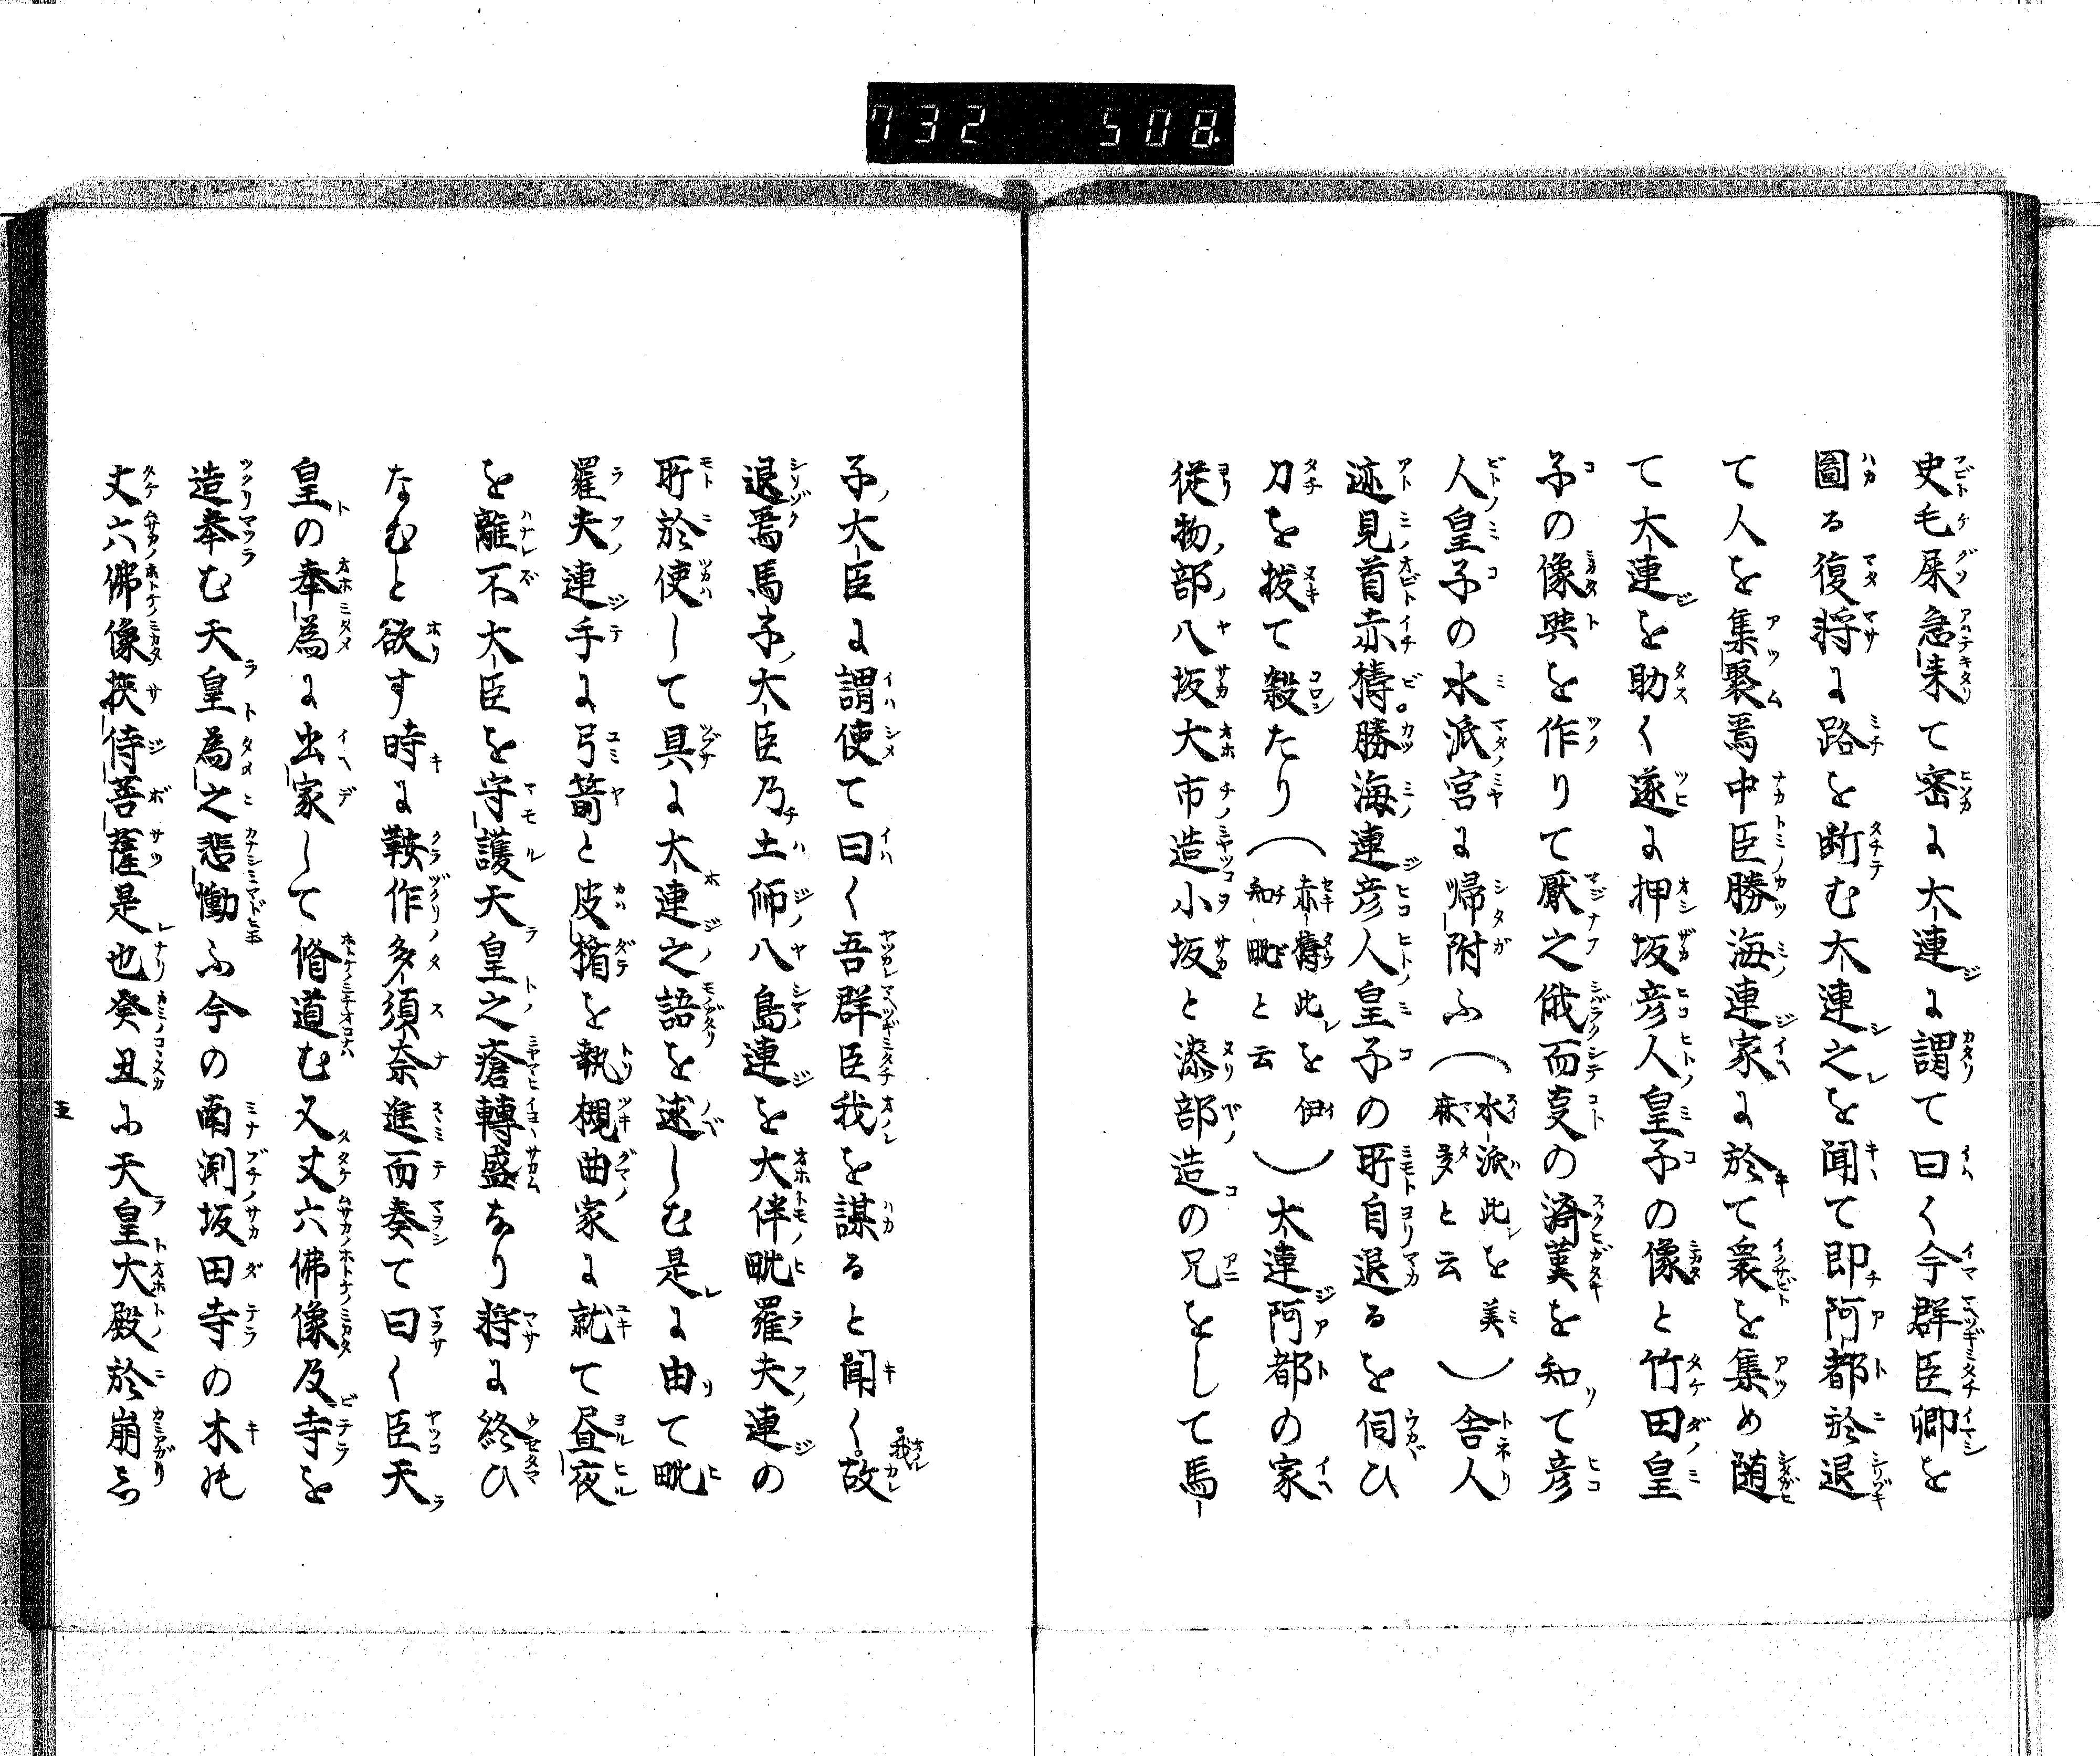 732 508
史毛屎急来て密に大連に謂て曰く今群臣卿を
圖る復将に路を断む大連之を聞て即阿都於退
て人を集聚焉中臣勝海連家に於て衆を集め随
て大連を助く遂に押坂彦人皇子の像と竹田皇
子の像與を作りて厭之俄而叓の済𫀆を知て彦
人皇子の水派宮に帰附ふ（水派此を美麻多と云）舎人
迹見首赤檮勝海連彦人皇子の所自退るを伺ひ
刀を拔て殺たり（赤檮此を伊知毗と云）大連阿都の家
従物部八坂大市造小坂と漆部造の兄をして馬
子大臣に謂使て曰く吾群臣我を謀ると聞く我故
退焉馬子大臣乃土師八島連を大伴毗羅夫連の
所於使して具に大連之語を述しむ是に由て毗
羅夫連手に弓箭と皮楯を執槻曲家に就て昼夜
を離不大臣を守護天皇之瘡轉盛なり将に終ひ
なむと欲す時に鞍作多須奈進而奏て曰く臣天
皇の奉為に出家して脩道む又丈六佛像及寺を
造奉む天皇為之悲慟ふ今の南渕坂田寺の木の
丈六佛像挾侍菩薩是也癸丑に天皇大殿於崩し